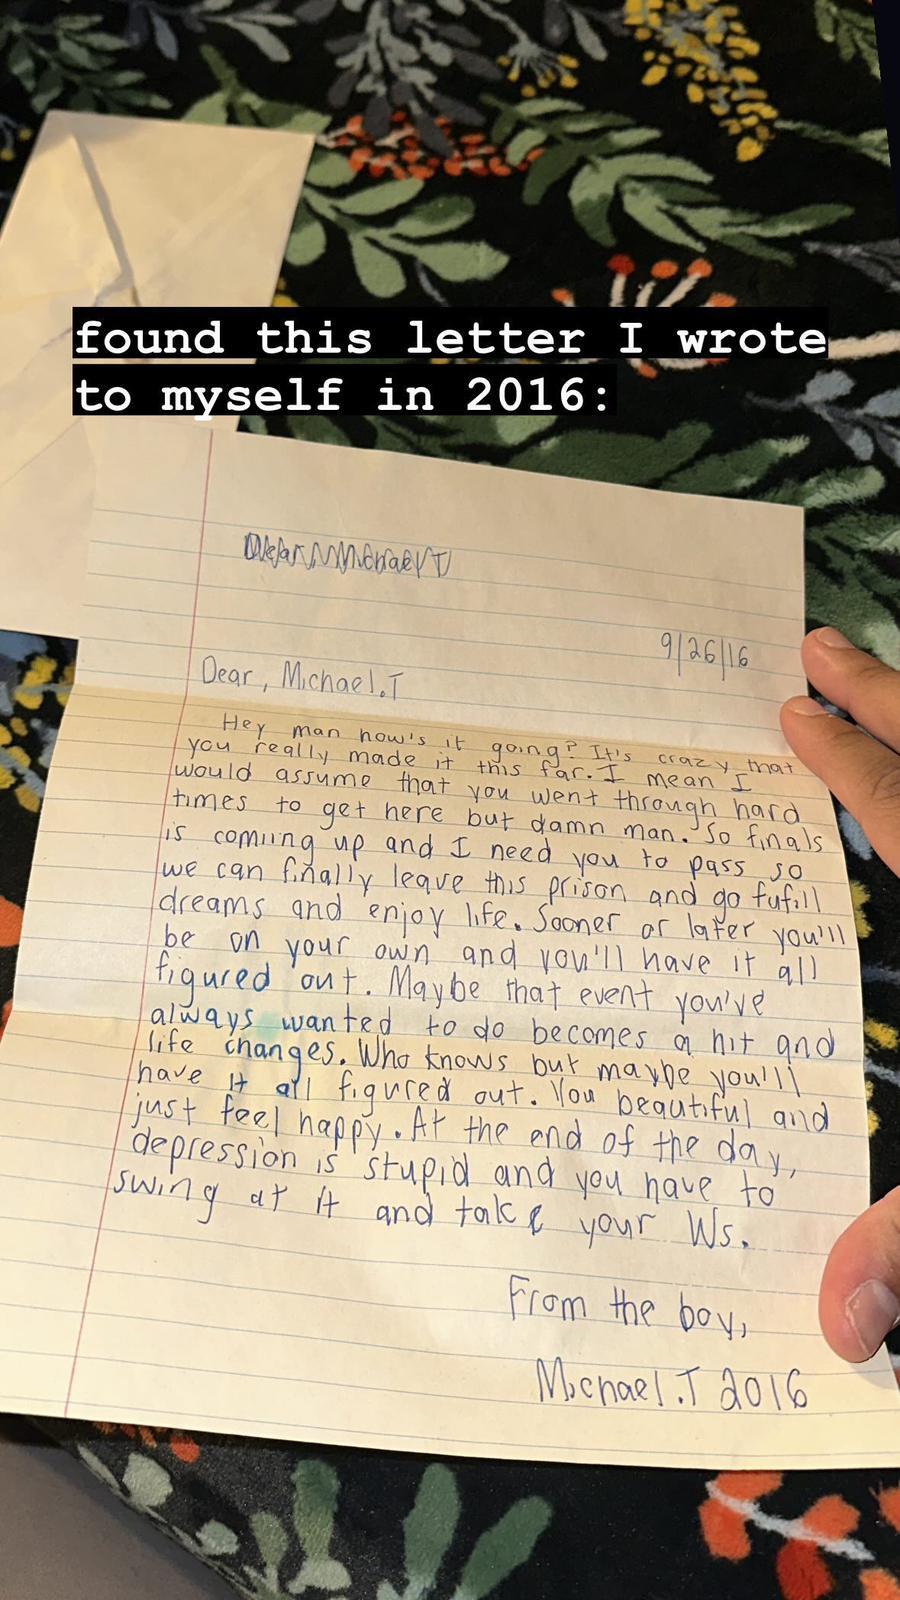 found this letter I wrote
to myself in 2016:
Dear, Michael T
9/26/16
Dear, Michael.T
Hey man how's it going? It's crazy that
you really made it this far. I mean I
would assume that you went through hard
times to get here but damn man. So finals
is comiing up and I need you to pass so
we can finally leave this prison and go fufill
dreams and enjoy life. Sooner or later you'll
be on your own and you'll have it all
figured out. Maybe that event you've
always wanted to do becomes a hit and
life changes. Who knows but maybe you'll
have it all figured out. You beautiful and
just feel happy. At the end of the day,
depression is stupid and you have to
swing at it and take your Ws.
From the boy,
Michael.T 2016